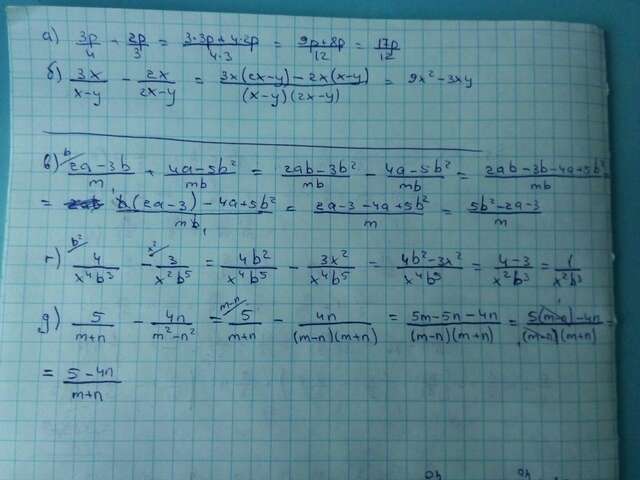 а) 3p/4 + 2p/3 = (3·3p+4·2p)/(4·3) = (9p+8p)/12 = 17p/12
б) 3x/(x-y) - 2x/(2x-y) = (3x(2x-y)-2x(x-y))/((x-y)(2x-y)) = 9x²-3xy
в) (2a-3b)/m + (4a-5b²)/mb = (2ab-3b²)/mb - (4a-5b²)/mb = (2ab-3b-4a+5b²)/mb =
= (b(2a-3)-4a+5b²)/mb = (2a-3-4a+5b²)/m = (5b²-2a-3)/m
г) 4/(x⁴b³) - 3/(x²b⁵) = 4b²/(x⁴b⁵) - 3x²/(x⁴b⁵) = (4b²-3x²)/(x⁴b⁵) = (4-3)/(x²b³) = 1/(x²b³)
д) 5/(m+n) - 4n/(m²-n²) = 5/(m+n) - 4n/((m-n)(m+n)) = (5m-5n-4n)/((m-n)(m+n)) = (5(m-n)-4n)/((m-n)(m+n)) =
= (5-4n)/(m+n)